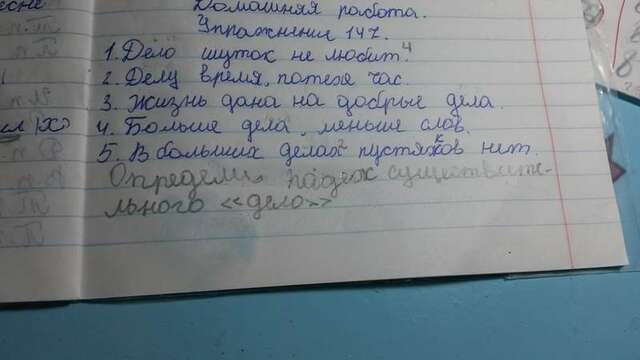 Домашняя работа.
Упражнение 147.
1. Дело шуток не любит.⁴
2. Делу время, потехе час.
3. Жизнь дана на добрые дела.
4. Больше дела, меньше слов.
5. В больших делах² пустяков нет.
Определи падеж существите-
льного «дело»